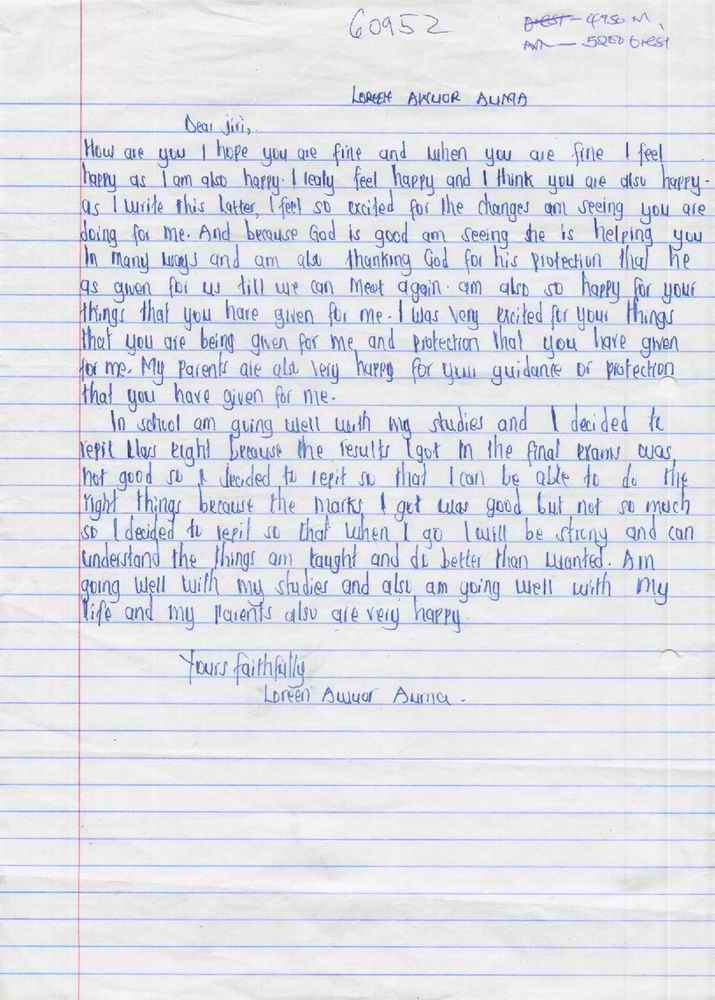 60952
4950 M,
5200 brest
LOREEN AWUOR AUMA
Dear Jiri,
How are you I hope you are fine and when you are fine I feel
happy as I am also happy. I realy feel happy and I think you are also happy.
as I write this latter, I feel so excited for the changes am seeing you are
doing for me. And because God is good am seeing she is helping you
in many ways and am also thanking God for his protection that he
as given for us till we can meet again. am also so happy for your
things that you have given for me. I was very excited for your things
that you are being given for me and protection that you have given
for me. My parents are also very happy for your guidance or protection
that you have given for me.
In school am going well with my studies and I decided to
repit class eight because the results I got in the final exams was
not good so I decided to repit so that I can be able to do the
right things because the marks I got was good but not so much
so I decided to repit so that when I go I will be strong and can
understand the things am taught and do better than wanted. Am
going well with my studies and also am going well with my
life and my parents also are very happy
Yours faithfully
Loreen Awuor Auma.